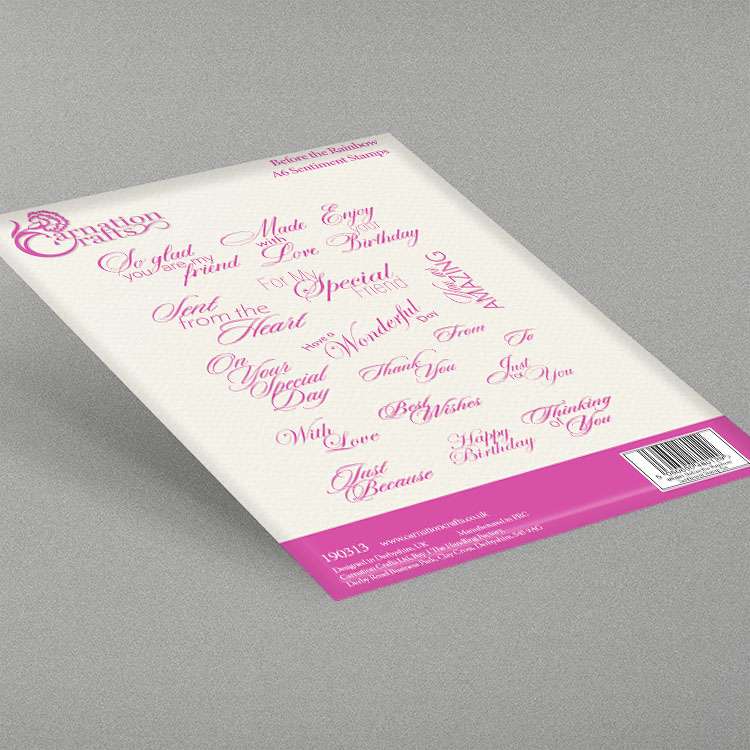 Before the Rainbow
A6 Sentiment Stamps
Carnation
Crafts
So glad
you are my
friend
Made
with
Love
Enjoy
your
Birthday
Sent
from the
Heart
For My
Special
Friend
You are
AMAZING
Have a
Wonderful
Day
On
Your
Special
Day
From
To
Thank
You
Just
for
You
With
Love
Best
Wishes
Thinking
of
You
Just
Because
Happy
Birthday
190313 www.carnationcrafts.co.uk
Designed in Derbyshire, UK Manufactured in PRC
Carnation Crafts Ltd, Bay 1 The Handling Factory,
Derby Road Business Park, Clay Cross, Derbyshire, S45 9AG